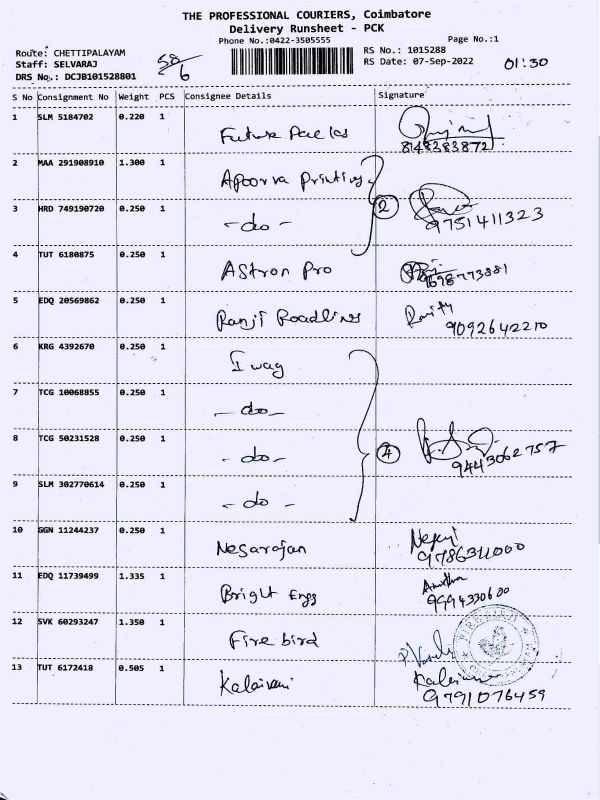 THE PROFESSIONAL COURIERS, Coimbatore
Delivery Runsheet - PCK
Phone No.:0422-3505555
Page No.:1
Route: CHETTIPALAYAM
Staff: SELVARAJ
DRS No.: DCJB101528801
58/6
RS No.: 1015288
RS Date: 07-Sep-2022
01:30
S No Consignment No Weight PCS Consignee Details Signature
1 SLM 5184702 0.220 1
8148383872
2 MAA 291908910 1.300 1 Apoorva Printing
3 HRD 749190720 0.250 1 -do- 2 9751411323
4 TUT 6180875 0.250 1 Astron Pro 98773881
5 EDQ 20569862 0.250 1 Ranji Roadlines 9092642210
6 KRG 4392670 0.250 1 I wag
7 TCG 10068855 0.250 1 -do-
8 TCG 50231528 0.250 1 -do- 4 9443062757
9 SLM 302770614 0.250 1 -do-
10 GGN 11244237 0.250 1 Nesarajan 9786311000
11 EDQ 11739499 1.335 1 Bright Engg 9994330600
12 SVK 60293247 1.350 1 Fire bird
13 TUT 6172418 0.505 1 Kalaivani 9791076459